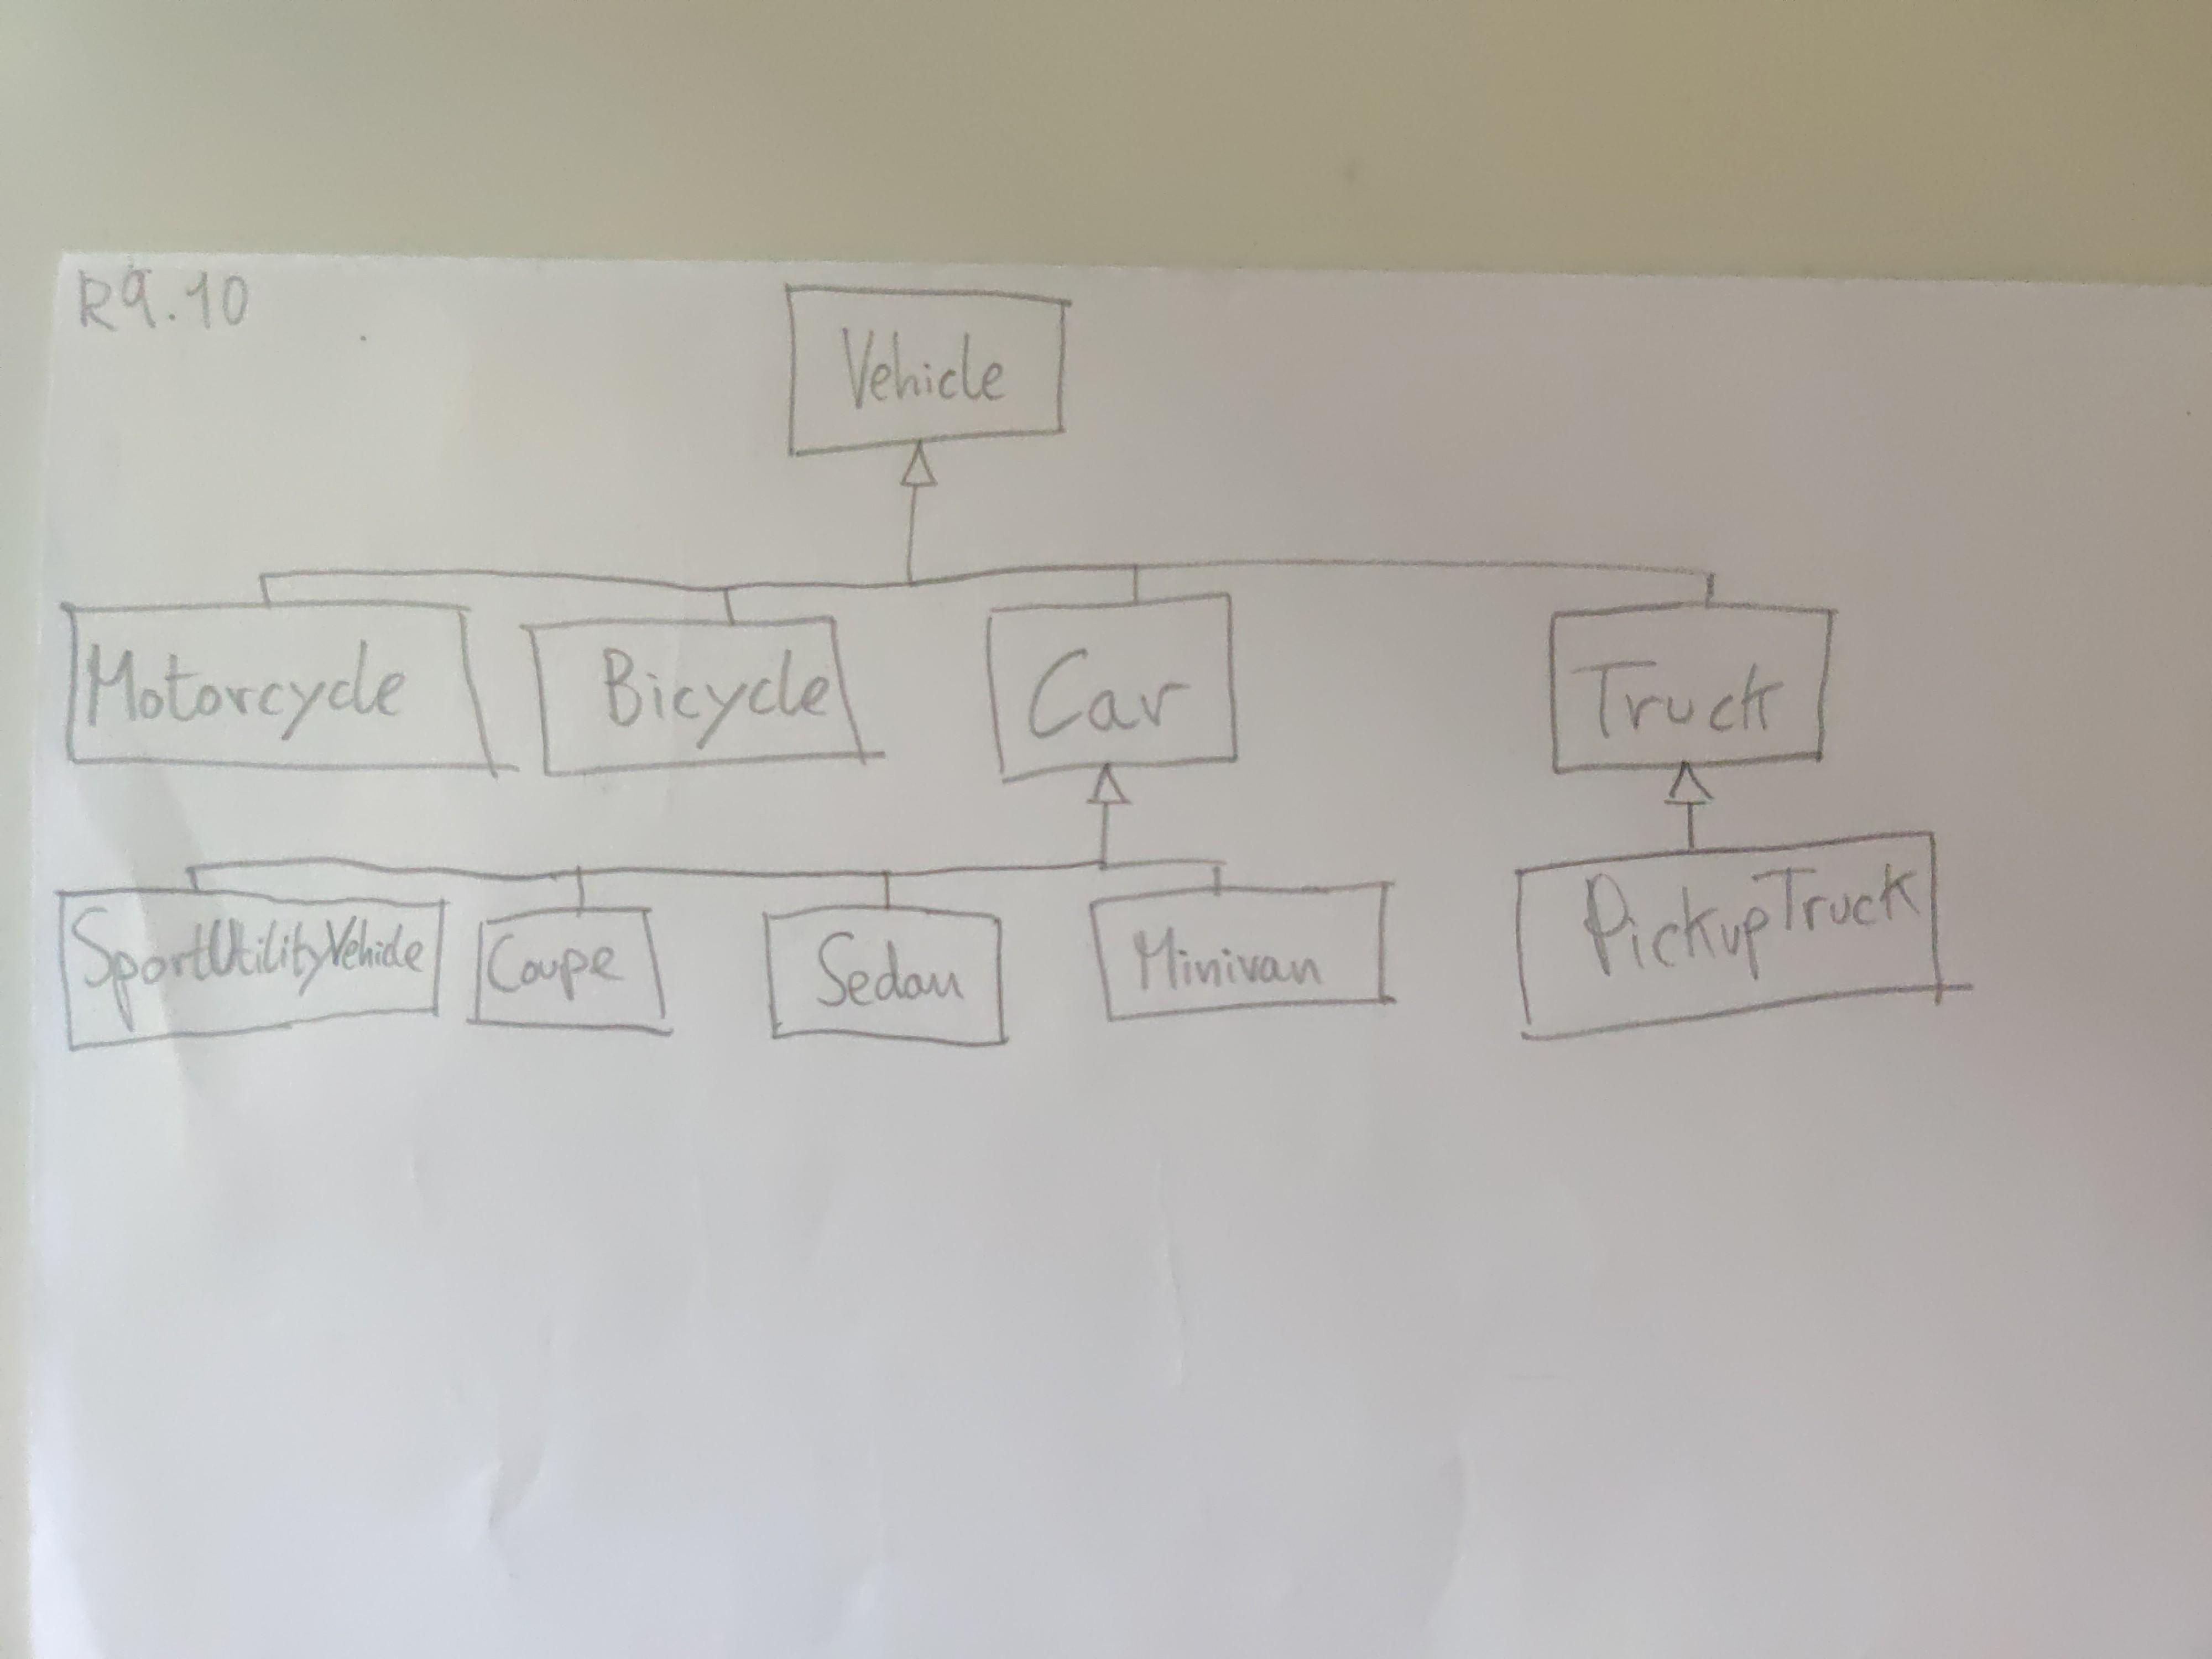 R9.10
Vehicle
Motorcycle
Bicycle
Car
Truck
SportUtilityVehicle
Coupe
Sedan
Minivan
PickupTruck